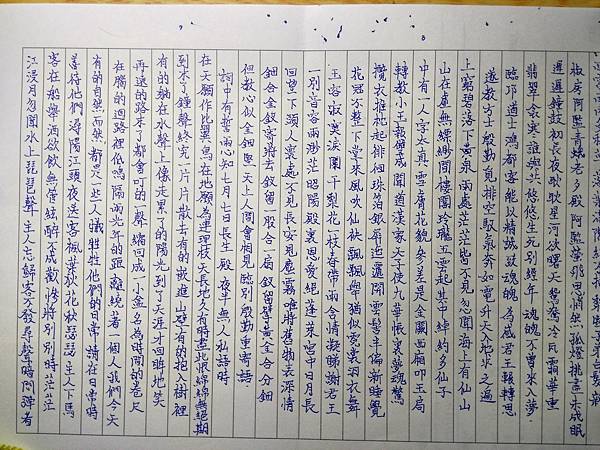 椒房阿監青娥老夕殿
遲遲鐘鼓初長夜耿耿星河欲曙天鴛鴦冷瓦霜華重
翡翠衾寒誰與共悠悠生死別經年魂魄不曾來入夢
臨邛道士鴻都客能以精誠致魂魄為感君王輾轉思
遂教方士殷勤覓排空馭氣奔如電升天入地求之遍
上窮碧落下黃泉兩處茫茫皆不見忽聞海上有仙山
山在虛無縹緲間樓閣玲瓏五雲起其中綽約多仙子
中有一人字太真雪膚花貌參差是金闕西廂叩玉扃
轉教小玉報雙成聞道漢家天子使九華帳裏夢魂驚
攬衣推枕起徘徊珠箔銀屏迤邐開雲髻半偏新睡覺
花冠不整下堂來風吹仙袂飄飄舉猶似霓裳羽衣舞
玉容寂寞淚闌干梨花一枝春帶雨含情凝睇謝君王
一別音容兩渺茫昭陽殿裏恩愛絕蓬萊宮中日月長
回望下頭人寰處不見長安見塵霧唯將舊物表深情
鈿合金釵寄將去釵留一股合一扇釵留擘黃金合分鈿
但教心似金鈿堅天上人間會相見臨別殷勤重寄語
詞中有誓兩心知七月七日長生殿夜半無人私語時
在天願作比翼鳥在地願為連理枝天長地久有時盡此恨綿綿無絕期
到來了鐘聲終究一片片散去有的嵌進山壁有的抱入樹裡
有的躺在水聲上像走累了的陽光到了天涯才回眸地笑
再遠的路來了都會叮的一聲縮回成一小盒名為時間的卷尺
在腦的迴路裡低鳴隔兩少年的距離繞著一個人我們今天
有的自然而然都是一些人犧牲他們的日常請在日常時
善待他們潯陽江頭夜送客楓葉荻花秋瑟瑟主人下馬
客在船舉酒欲飲無管絃醉不成歡慘將別別時茫茫
江浸月忽聞水上琵琶聲主人忘歸客不發尋聲暗問彈者